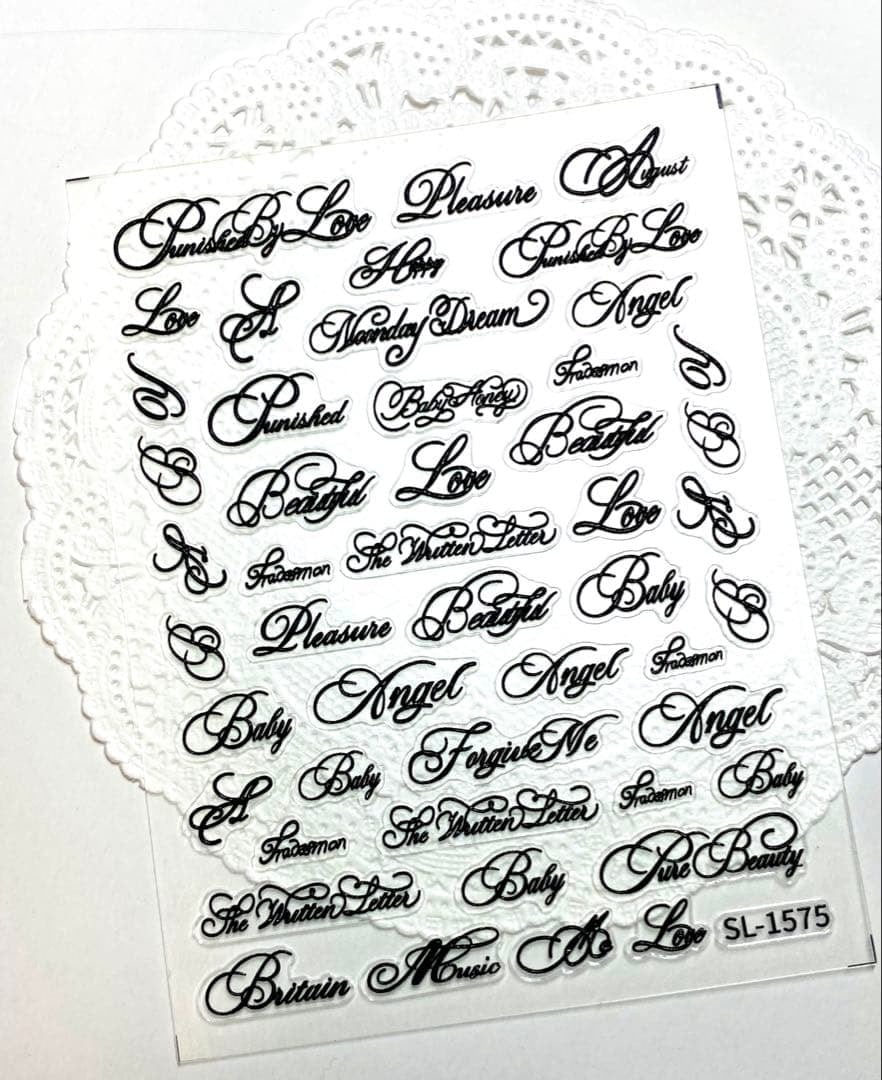 Punished By Love Pleasure August
Happy Punished By Love
Love A Noonday Dream Angel
Punished Baby Honey Tradesman
Beautiful Love Beautiful
B B
Tradesman The Written Letter Love
Pleasure Beautiful Baby
B B
Baby Angel Angel Tradesman
Forgive Me Angel
A Baby Tradesman Baby
Tradesman The Written Letter
The Written Letter Baby Pure Beauty
Britain Music Me Love SL-1575